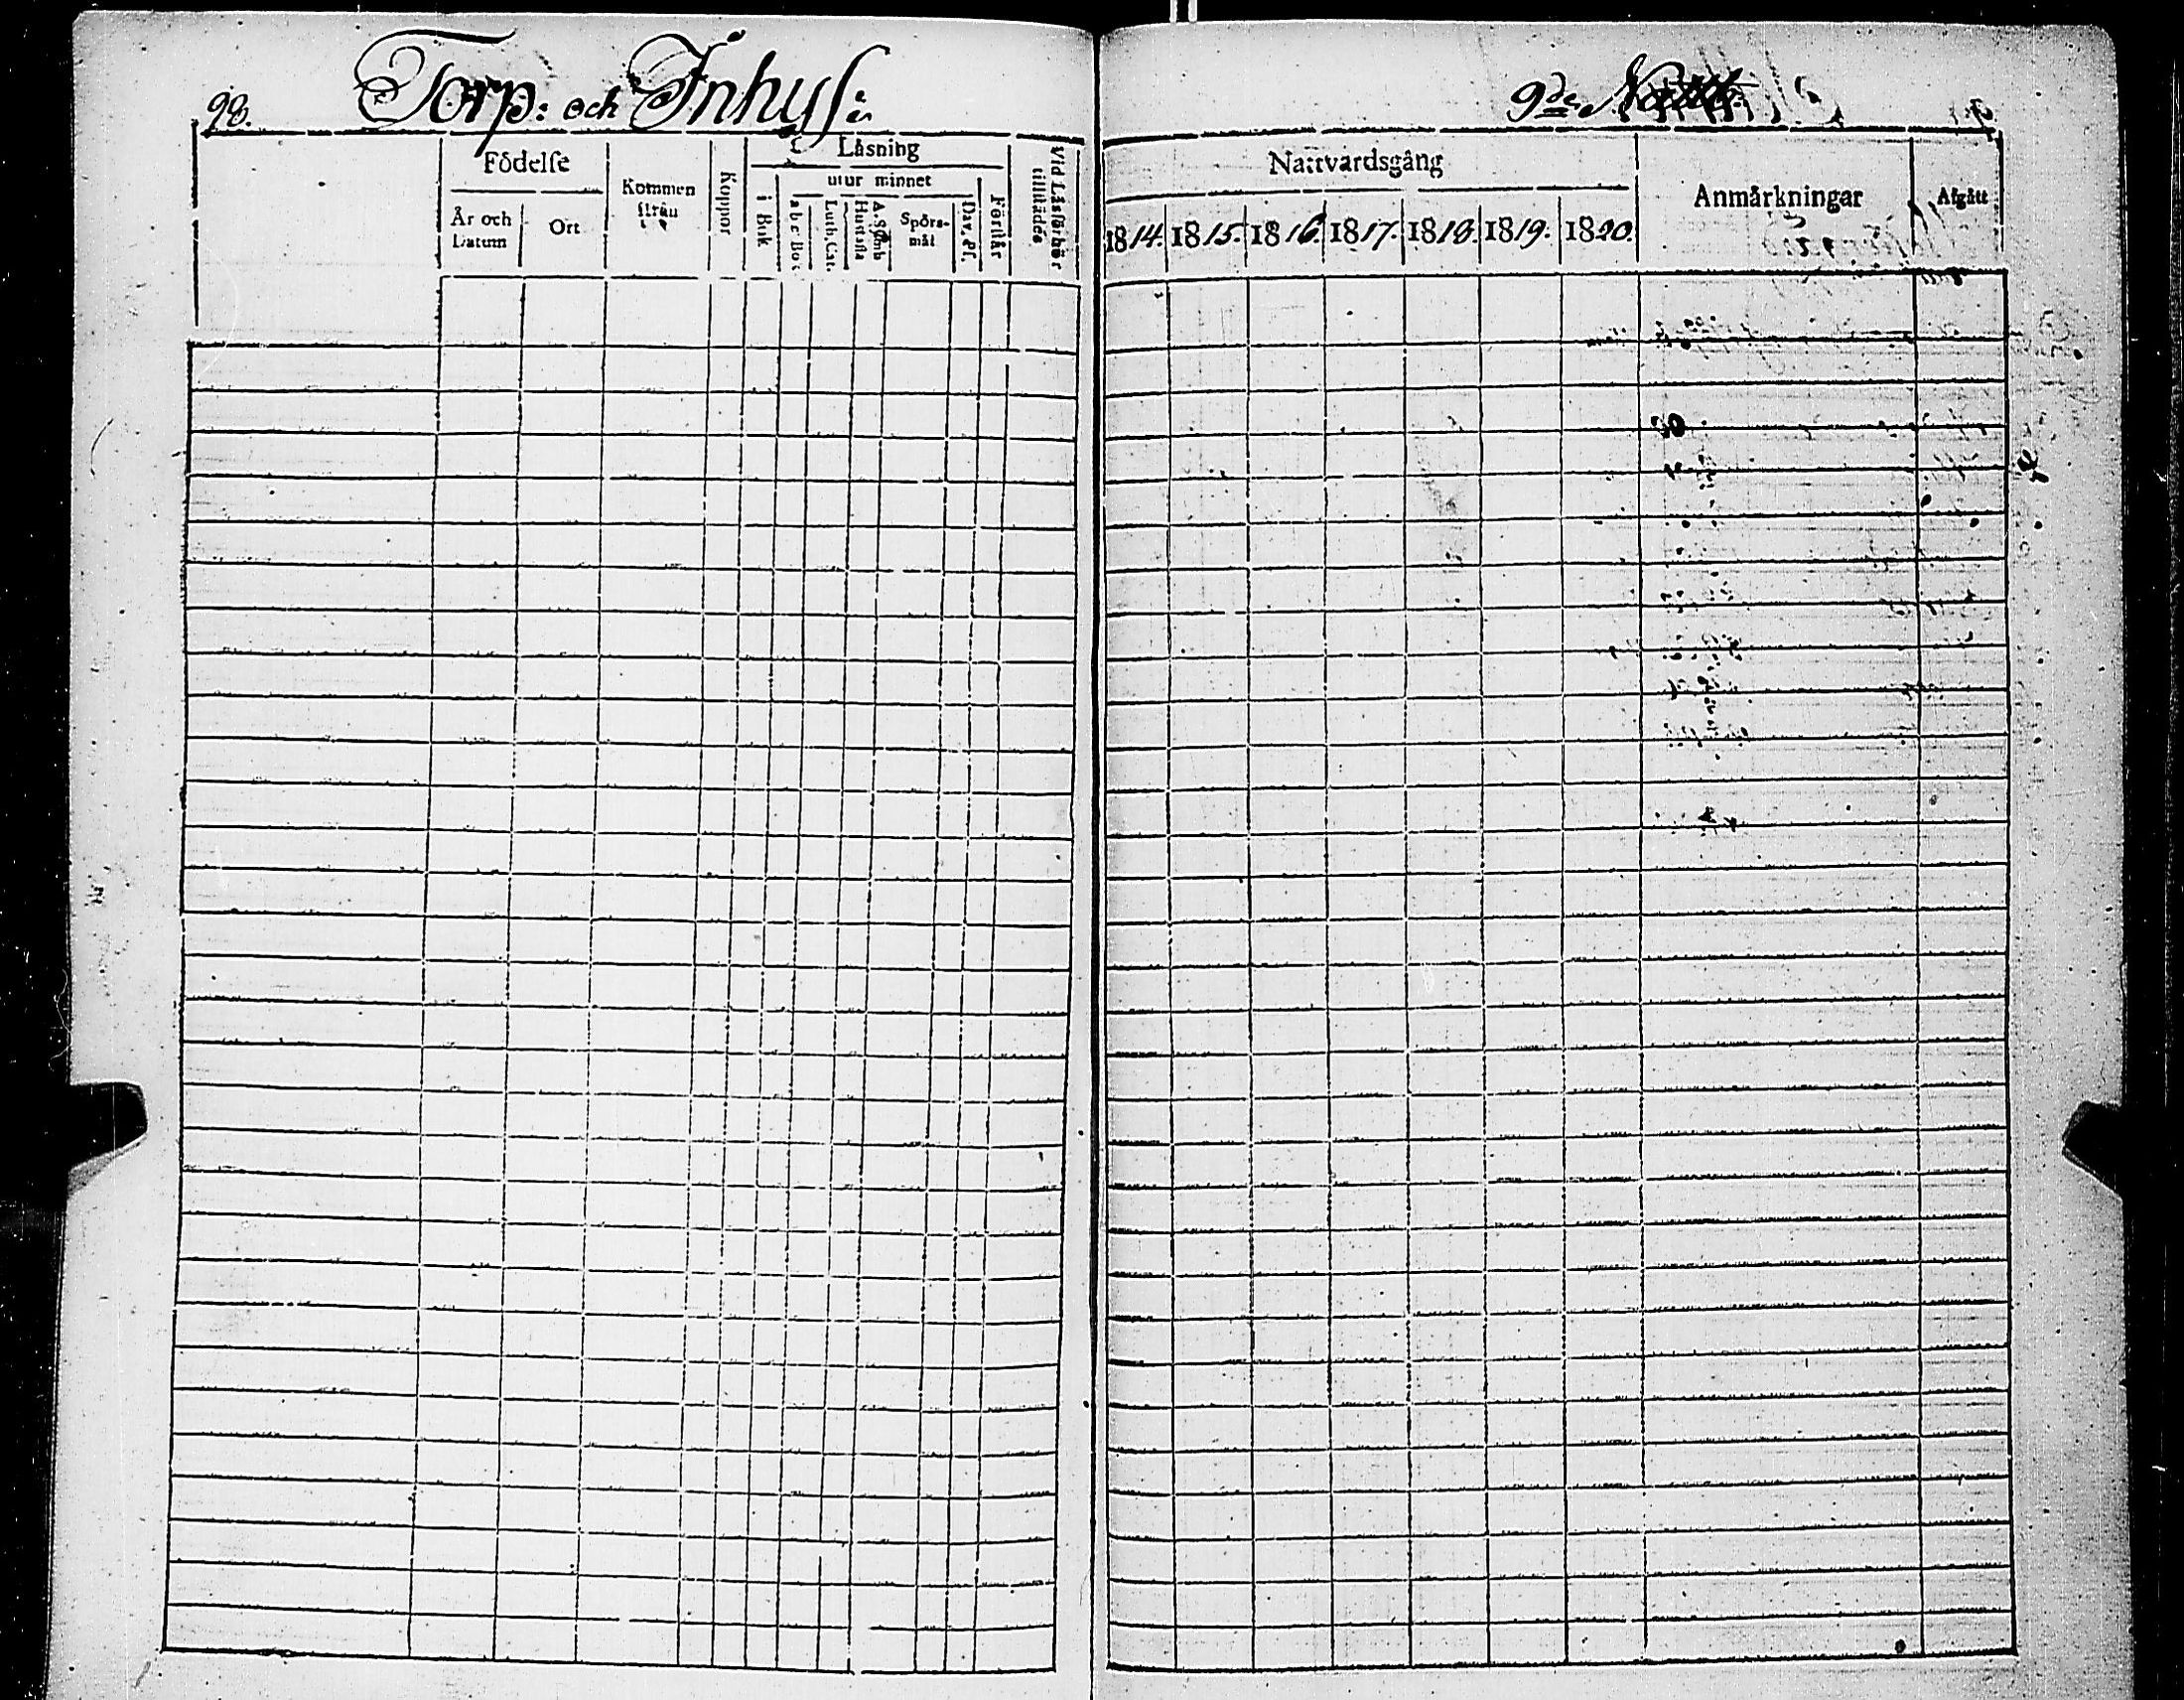 98. Torp: och Inhys:
Födelse
År och Datum
Ort
Kommen ifrån
Koppor
Läsning
i Bok
utur minnet
a b c Bok
Luth. Cat.
A. Symb Hustafla
Spörsmål
Dav. Ps.
Förstår
Vid Läsförhör tillstädes
9de
Nattvardsgång
1814. 1815. 1816. 1817. 1818. 1819. 1820.
Anmärkningar
Afgått